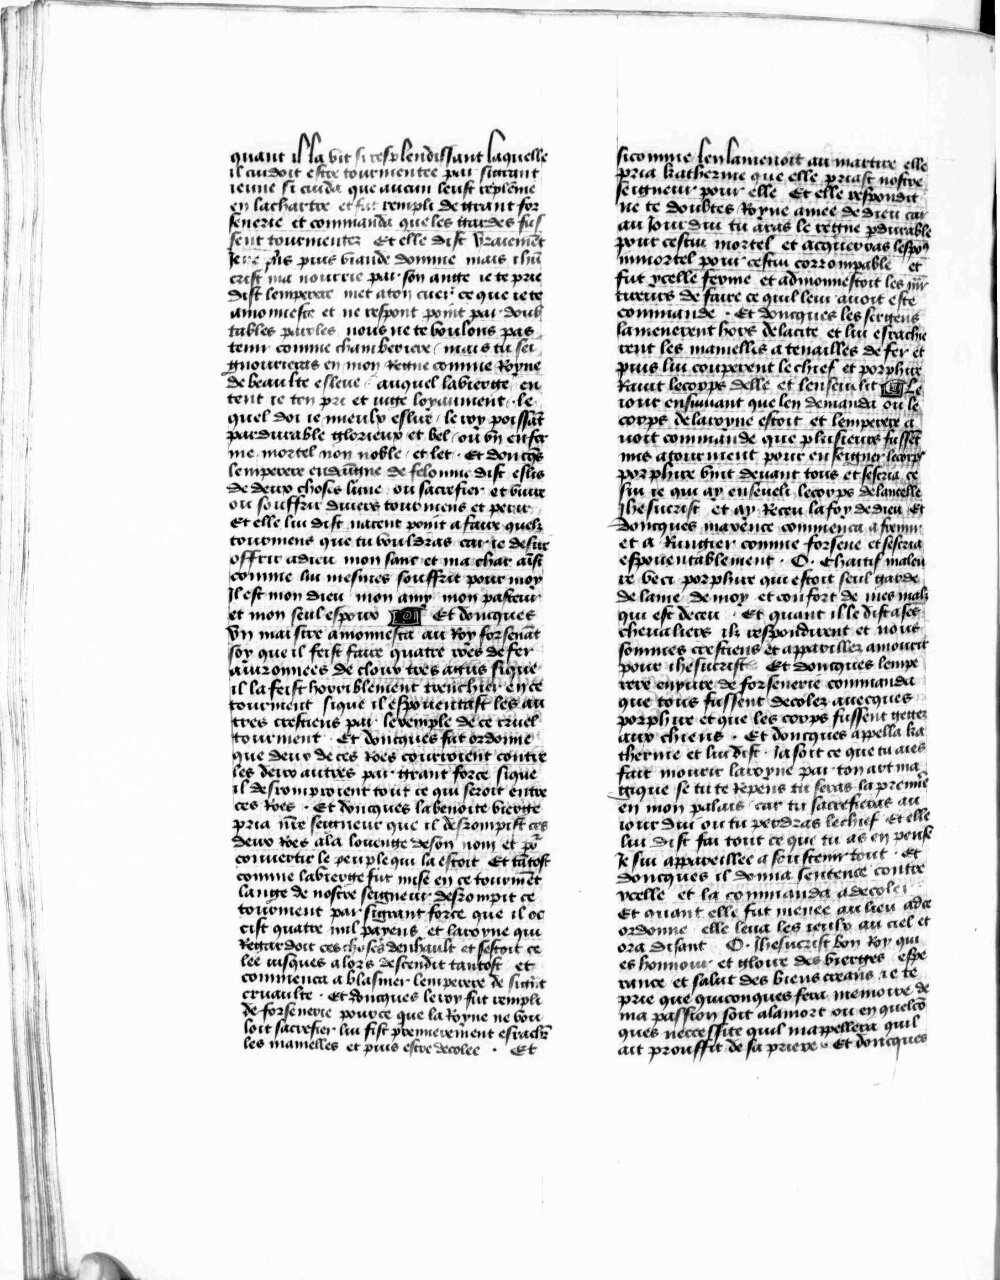 quant il la vit si resplendissant laquelle
il cuidoit estre tourmentee par si grant
ieune si cuida que aucun leust
en la chartre et fut rempli de grant for
senerie et commanda que les gardes fus
sent tourmentez Et elle dist vraiement
Je ne pris puis viande domme mais ihu
crist ma nourrie par son ange ie te prie
dist lemperere met a ton cuer ce que ie te
amonneste et ne respont point par doub
tables paroles nous ne te voulons pas
tenir comme chamberiere mais tu sei
gnouriras en mon Regne comme Royne
de beaulte esleue auquel la vierge en
tent ie ten pri et iuge loyaument le
quel doi ie mieulx eslire le roy poissāt
pardurable glorieux et bel ou vn enfer
me mortel non noble et let Et doncq̄s
lemperere endaigne de felonnie dist eslis
de deux choses lune ou sacrefier et viure
ou souffrir diuers tourmens et perir
Et elle lui dist natent point a faire quelz
tourmens que tu vouldras car ie desire
offrir a dieu mon sanc et ma char aīsi
comme lui mesmes souffrit pour moy
Il est mon dieu mon amy mon pasteur
et mon seul espoux Et doncques
vn maistre amonnesta au Roy forsenāt
soy que il feist faire quatre roes de fer
auironnees de cloux tres agus si que
il la feist horriblement trenchier en ce
tourment si que il espouentast les au
tres crestiens par lexemple de ce cruel
tourment Et doncques fut ordonne
que deux de ces Roes courroient contre
les deux autres par grant force si que
il desromproient tout ce qui seroit entre
ces Roes Et doncques la benoite vierge
pria nr̄e seigneur que il desrompist ces
deux Roes a la louenge de son nom et po^r
conuertir le peuple qui la estoit Et tātost
comme la vierge fut mise en ce tourmēt
lange de nostre seigneur desrompit ce
tourment par si grant force que il oc
cist quatre mil payens et la royne qui
Regardoit ces choses den hault et sestoit ce
lee iusques alors descendit tantost et
commenca a blasmer lemperere de si gr̄at
cruaulte Et doncques le roy fut rempli
de forsenerie pource que la Royne ne vou
loit sacrefier lui fist premierement esrachr̄
les mamelles et puis estre decolee Et
si comme len lamenoit au martire elle
pria katherine que elle priast nostre
seigneur pour elle Et elle respondit
ne te doubtes Royne amee de dieu car
au Jour dui tu aras le regne pdurable
pour cestui mortel et acquerras lespo^9
immortel pour cestui corrompable et
fut ycelle ferme et admonnestoit les
tireurs de faire ce quil leur auoit este
commande Et doncques les sergens
lamenerent hors de la cite et lui esrachie
rent les mamelles a tenailles de fer et
puis lui couperent le chief et porphire
Rauit le corps delle et lenseuelit Le
iour ensuiuant que len demanda ou le
corps de la royne estoit et lemperere a
uoit commande que plusieurs fussēt
mis a tourment pour enseigner le corps
porphire vint deuant tous et sescria ce
sui ie qui ay enseueli le corps de lancelle
Jhesucrist et ay Receu la foy de dieu Et
doncques maxence commenca a fremir
et a Rungier comme forsene et sescria
espouentablement O Chaitif maleu
re veci porphire qui estoit seul garde
de lame de moy et confort de mes malz
qui est deceu Et quant il le dist a ses
cheualiers ilz respondirent et nous
sommes crestiens et appareillez a mourir
pour ihesucrist Et doncques lempe
rere enyure de forsenerie commanda
que tous fussent decolez auecques
porphire et que les corps fussent gettez
aux chiens Et doncques appella ka
therine et lui dist Ja soit ce que tu aies
fait mourir la royne par ton art ma
gique se tu te Repens tu seras la premie
en mon palais car tu sacrefieras au
iour dui ou tu perdras le chief Et elle
lui dist fai tout ce que tu as en pense
Je sui appareillee a soustenir tout Et
doncques il donna sentence contre
ycelle et la commanda a decoler
Et quant elle fut menee au lieu a ce
ordonne elle leua les ieulx au ciel et
ora disant O Jhesucrist bon Roy qui
es honnour et gloire des vierges espe
rance et salut des biens creans ie te
prie que quiconques fera memoire de
ma passion soit a la mort ou en quelcō
ques neccessite quil mappellera quil
ait prouffit de sa priere Et doncques